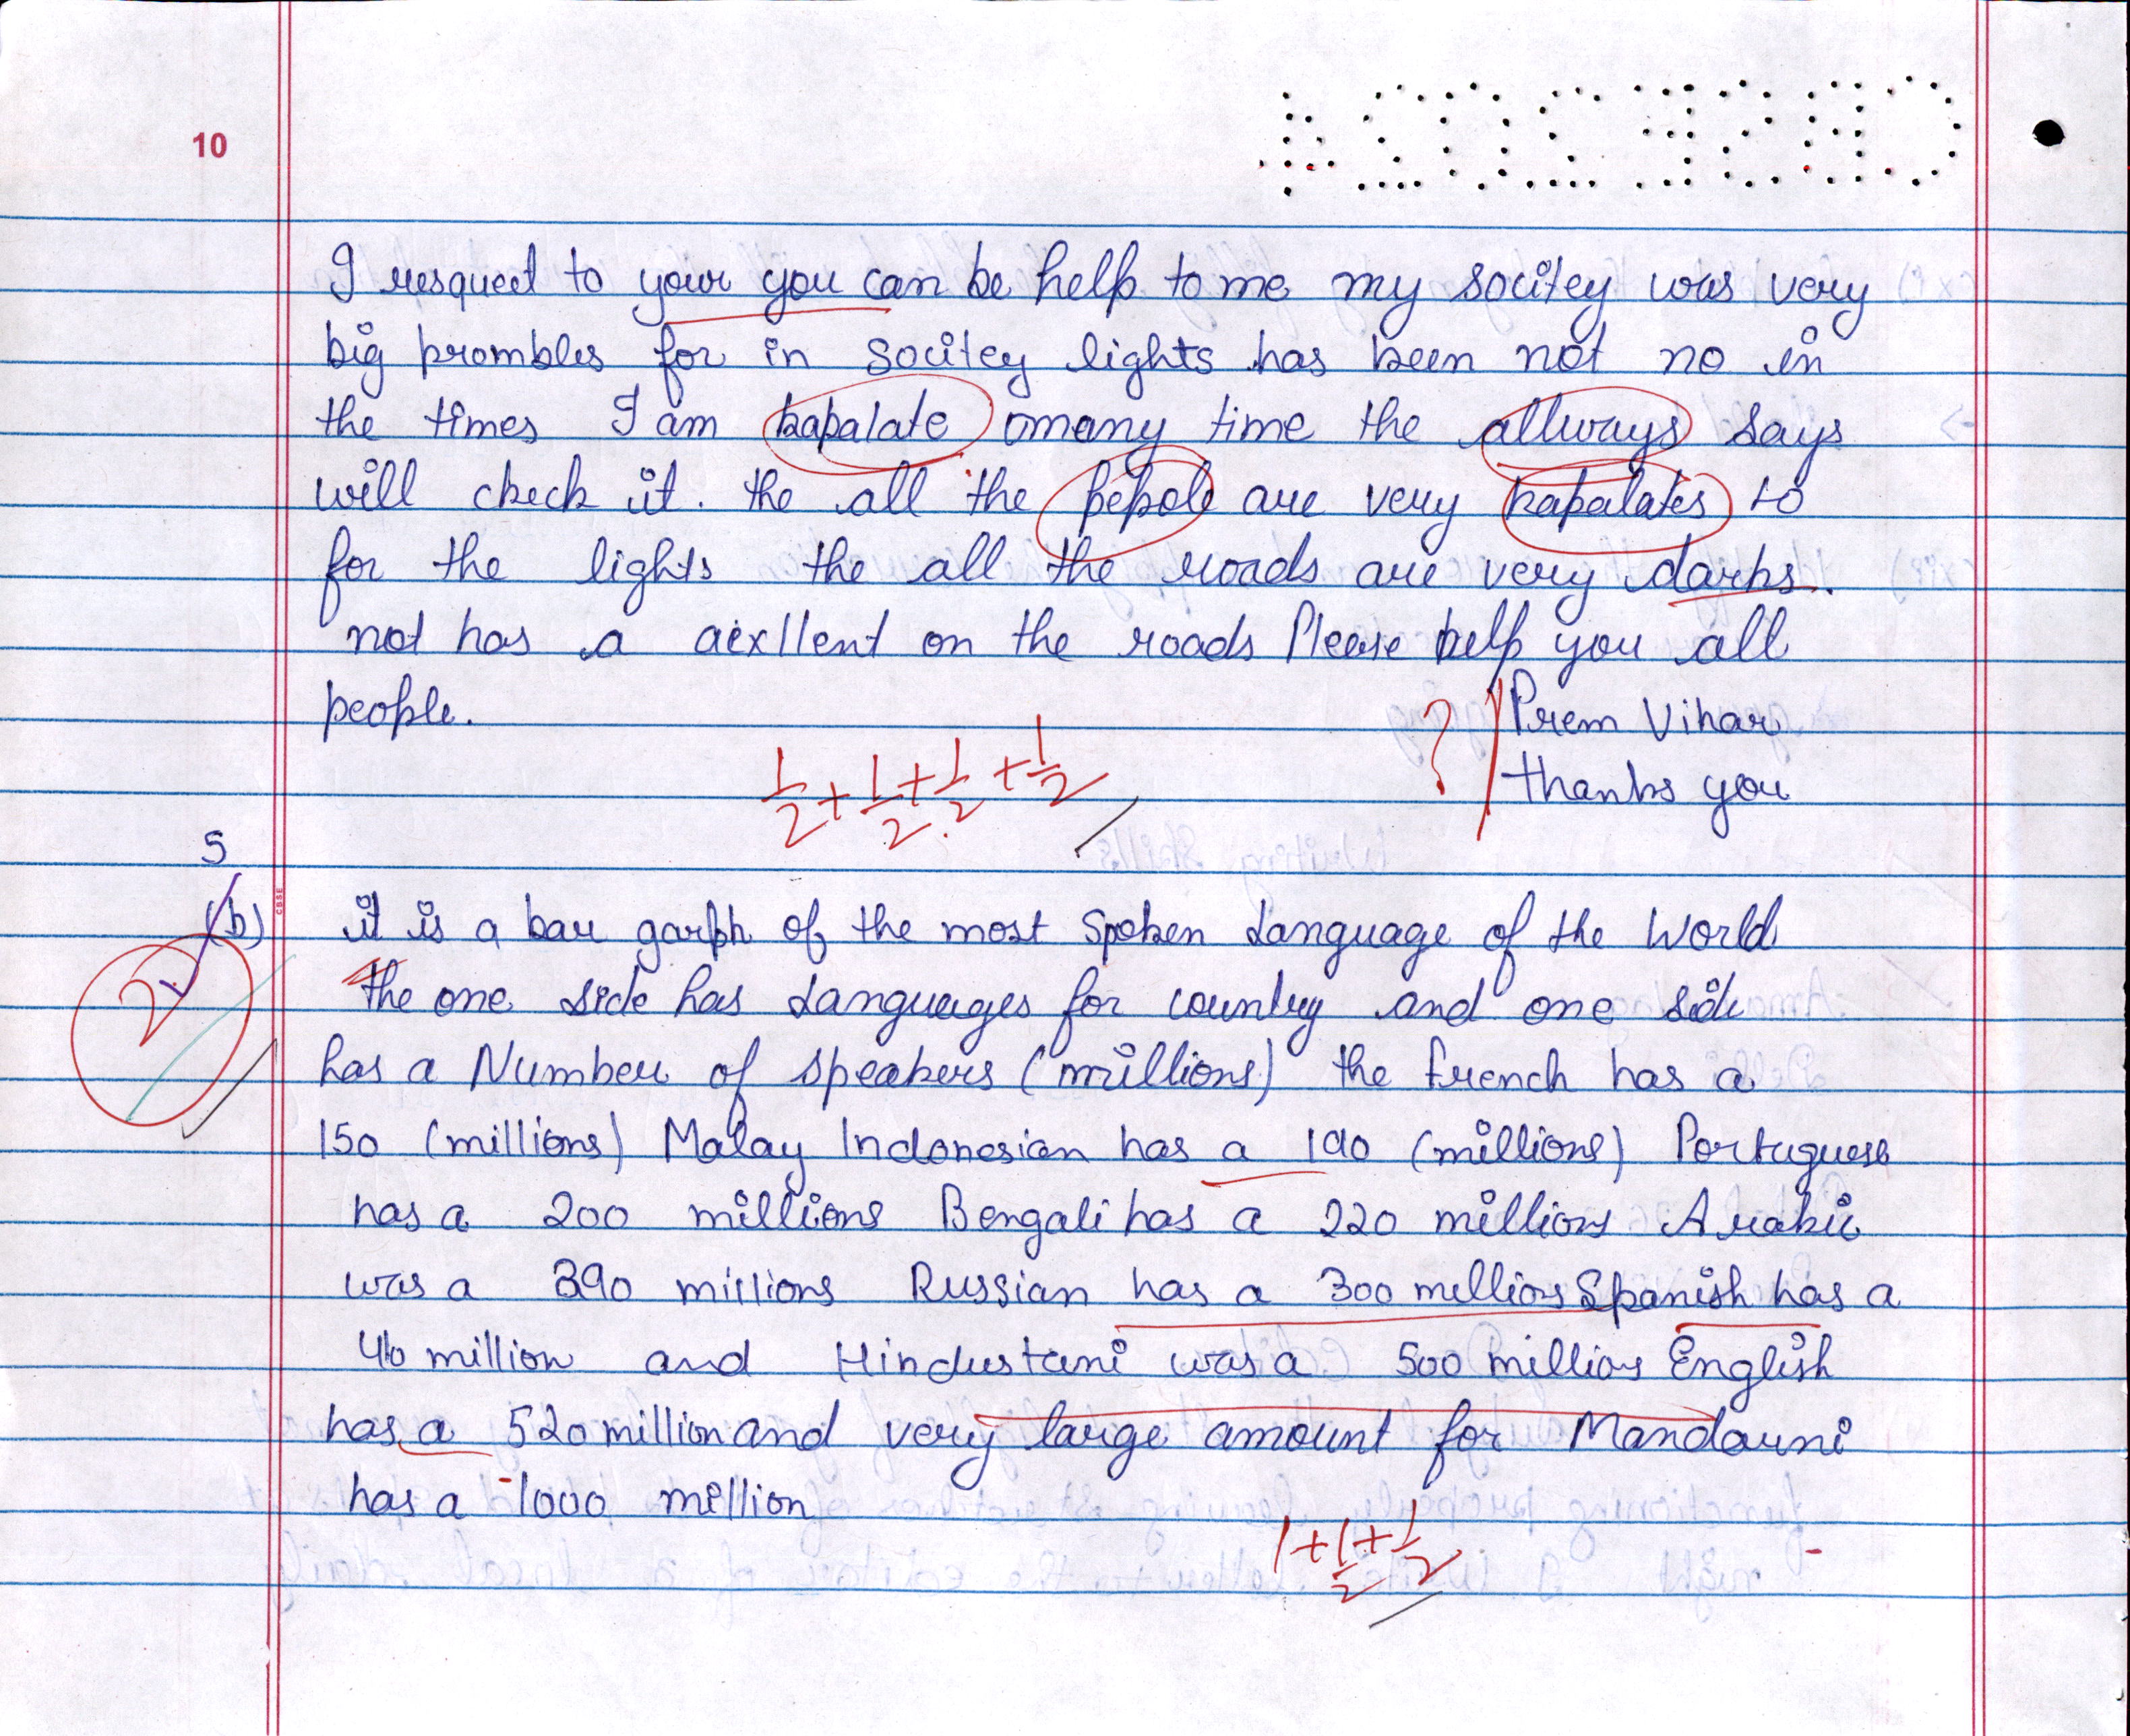 10
CBSE 2024
I resquect to your you can be help to me my socitey was very
big prombles for in Socitey lights has been not no in
the times I am kapalate many time the allways says
will check it. the all the pepole are very kapalates to
for the lights the all the roads are very darks.
not has a aixllent on the roads Please help you all
people.
? Prem Vihar
thanks you
1/2 + 1/2 + 1/2 + 1/2
5
(b) it is a bar garph of the most Spoken Language of the World
2
the one side has Languages for country and one side
has a Number of speakers (millions) the french has a
150 (millions) Malay Indonesian has a 190 (millions) Portuguese
has a 200 millions Bengali has a 220 millions Arabic
was a 390 millions Russian has a 300 millions Spanish has a
410 million and Hindustani was a 500 millions English
has a 520 million and very large amount for Mandarni
has a 1000 million
1 + 1/2 + 1/2
CBSE